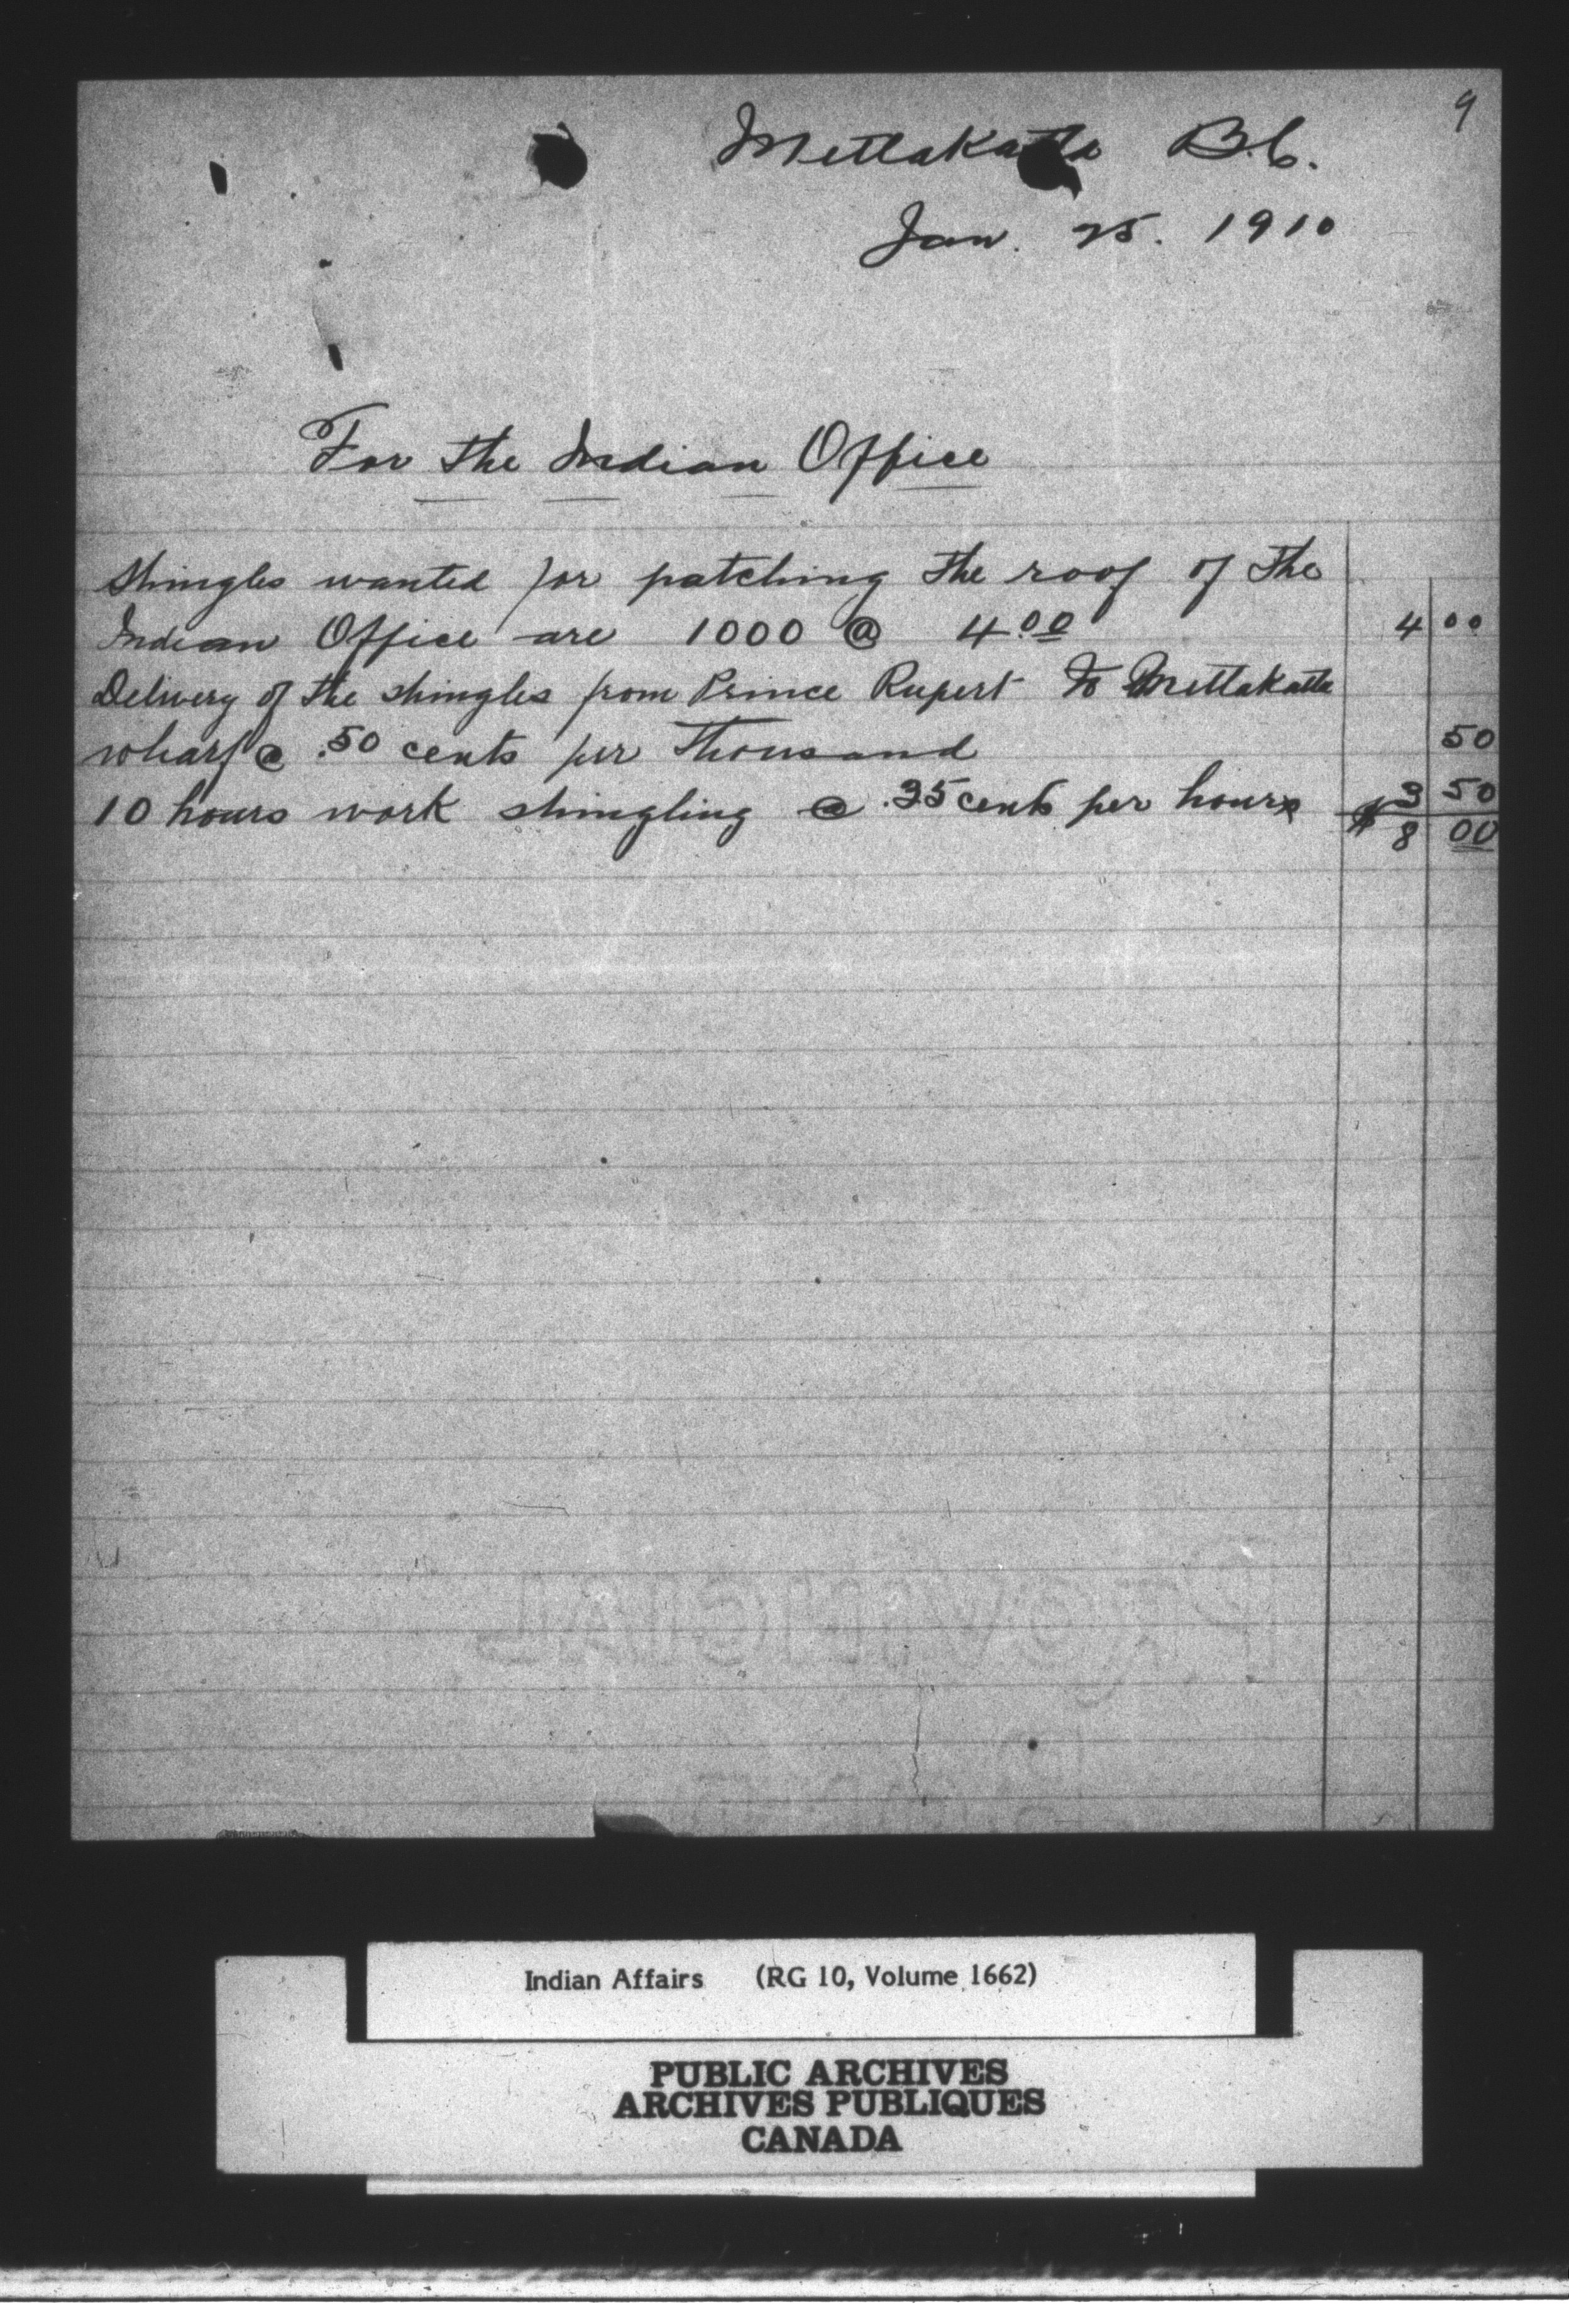 9
Metlakatla B.C.
Jan. 25. 1910
For the Indian Office
Shingles wanted for patching the roof of the
Indian Office are 1000 @ 4.00 4 00
Delivery of the shingles from Prince Rupert to Metlakatla
wharf @ .50 cents per thousand 50
10 hours work shingling @ .35 cents per hours 3 50
$ 8 00
PROVINCIAL
Indian Affairs (RG 10, Volume 1662)
PUBLIC ARCHIVES
ARCHIVES PUBLIQUES
CANADA